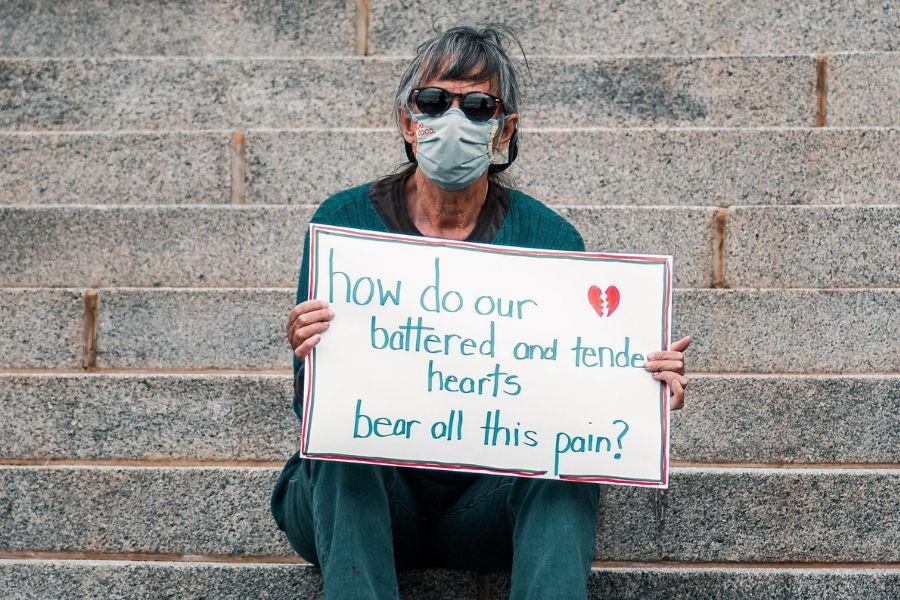 how do our
battered and tende
hearts
bear all this pain?